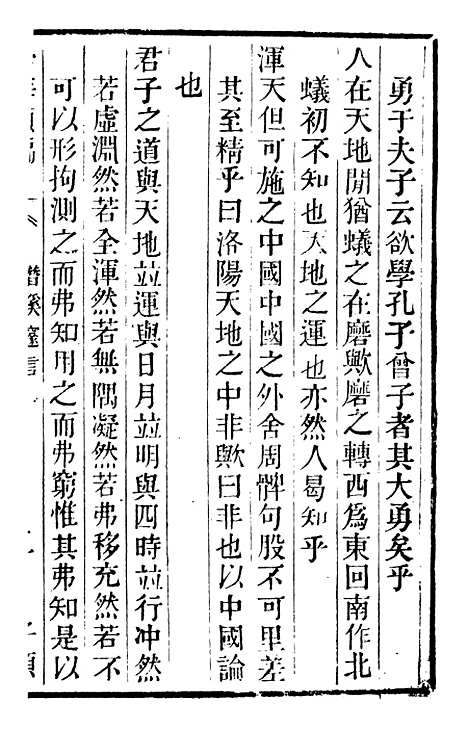 勇于夫子云欲學孔子曾子者其大勇矣乎
人在天地閒猶蟻之在磨歟磨之轉西爲東回南作北
蟻初不知也天地之運也亦然人曷知乎
渾天但可施之中國中國之外舍周髀句股不可里差
其至精乎曰洛陽天地之中非歟曰非也以中國論
也
君子之道與天地並運與日月並明與四時並行冲然
若虛淵然若全渾然若無隅凝然若弗移充然若不
可以形拘測之而弗知用之而弗窮惟其弗知是以
潛溪邃言